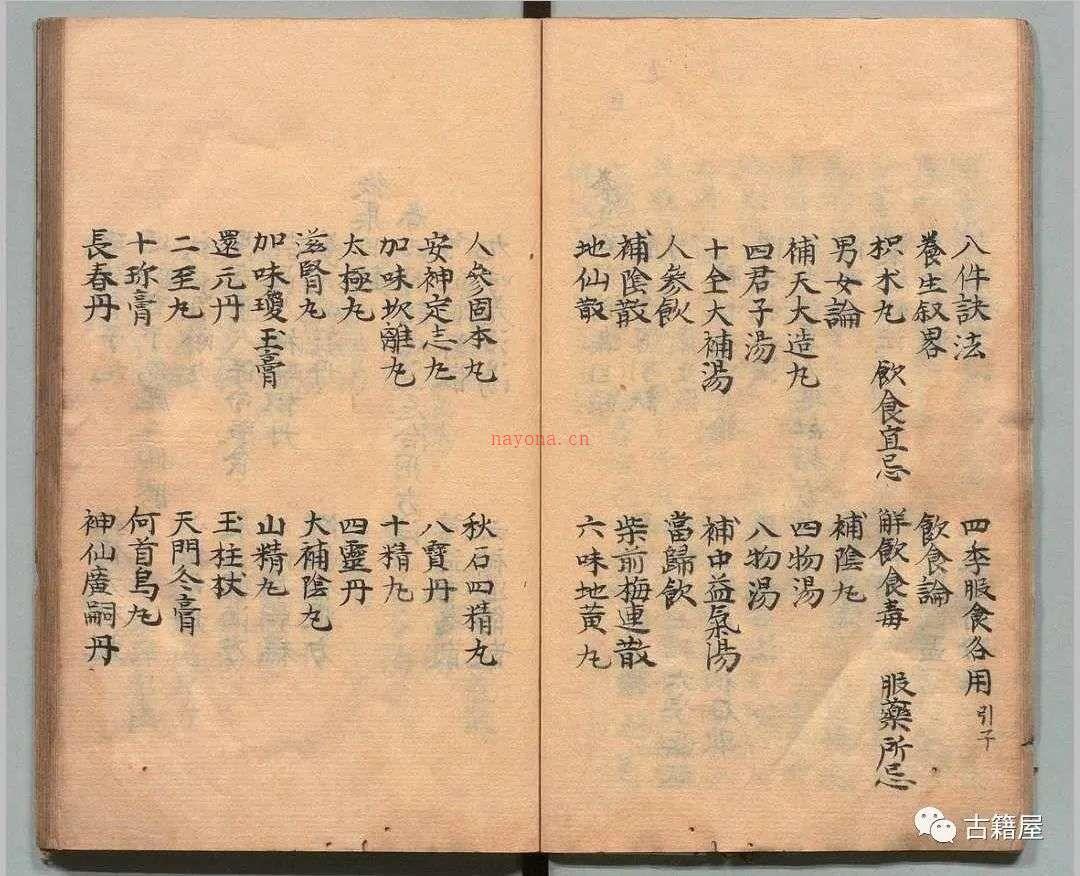 八件訣法 四季服食各用引子
養生叙畧 飲食論
枳朮丸 飲食宜忌 解飲食毒 服藥所忌
男女論 補陰丸
補天大造丸 四物湯
四君子湯 八物湯
十全大補湯 補中益氣湯
人參飲 當歸飲
補陰散 柴前梅連散
地仙散 六味地黃丸
人參固本丸 秋石四精丸
安神定志丸 八寶丹
加味坎離丸 十精丸
太極丸 四靈丹
滋腎丸 大補陰丸
加味瓊玉膏 山精丸
還元丹 玉柱杖
二至丸 天門冬膏
十珍膏 何首烏丸
長春丹 神仙廣嗣丹
nayona.cn
古籍屋